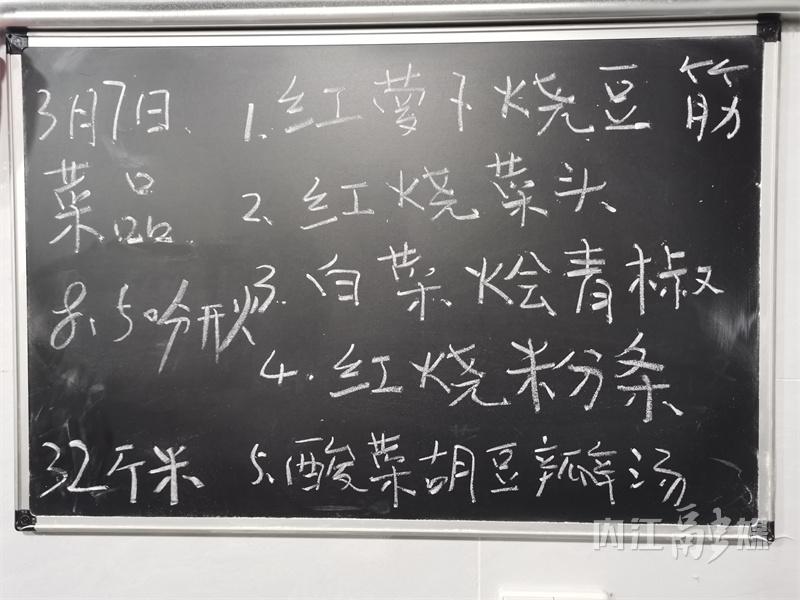 3月7日、
菜品
32斤米
1. 红萝卜烧豆筋
2. 红烧菜头
3. 白菜烩青椒
4. 红烧粉条
5. 酸菜胡豆瓣汤
内江融媒